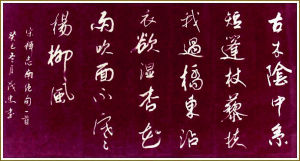 古木陰中系
短篷杖藜扶
我過橋東沾
衣欲湿杏花
雨吹面不寒
楊柳風
宋釋志南絶句一首
癸巳冬月